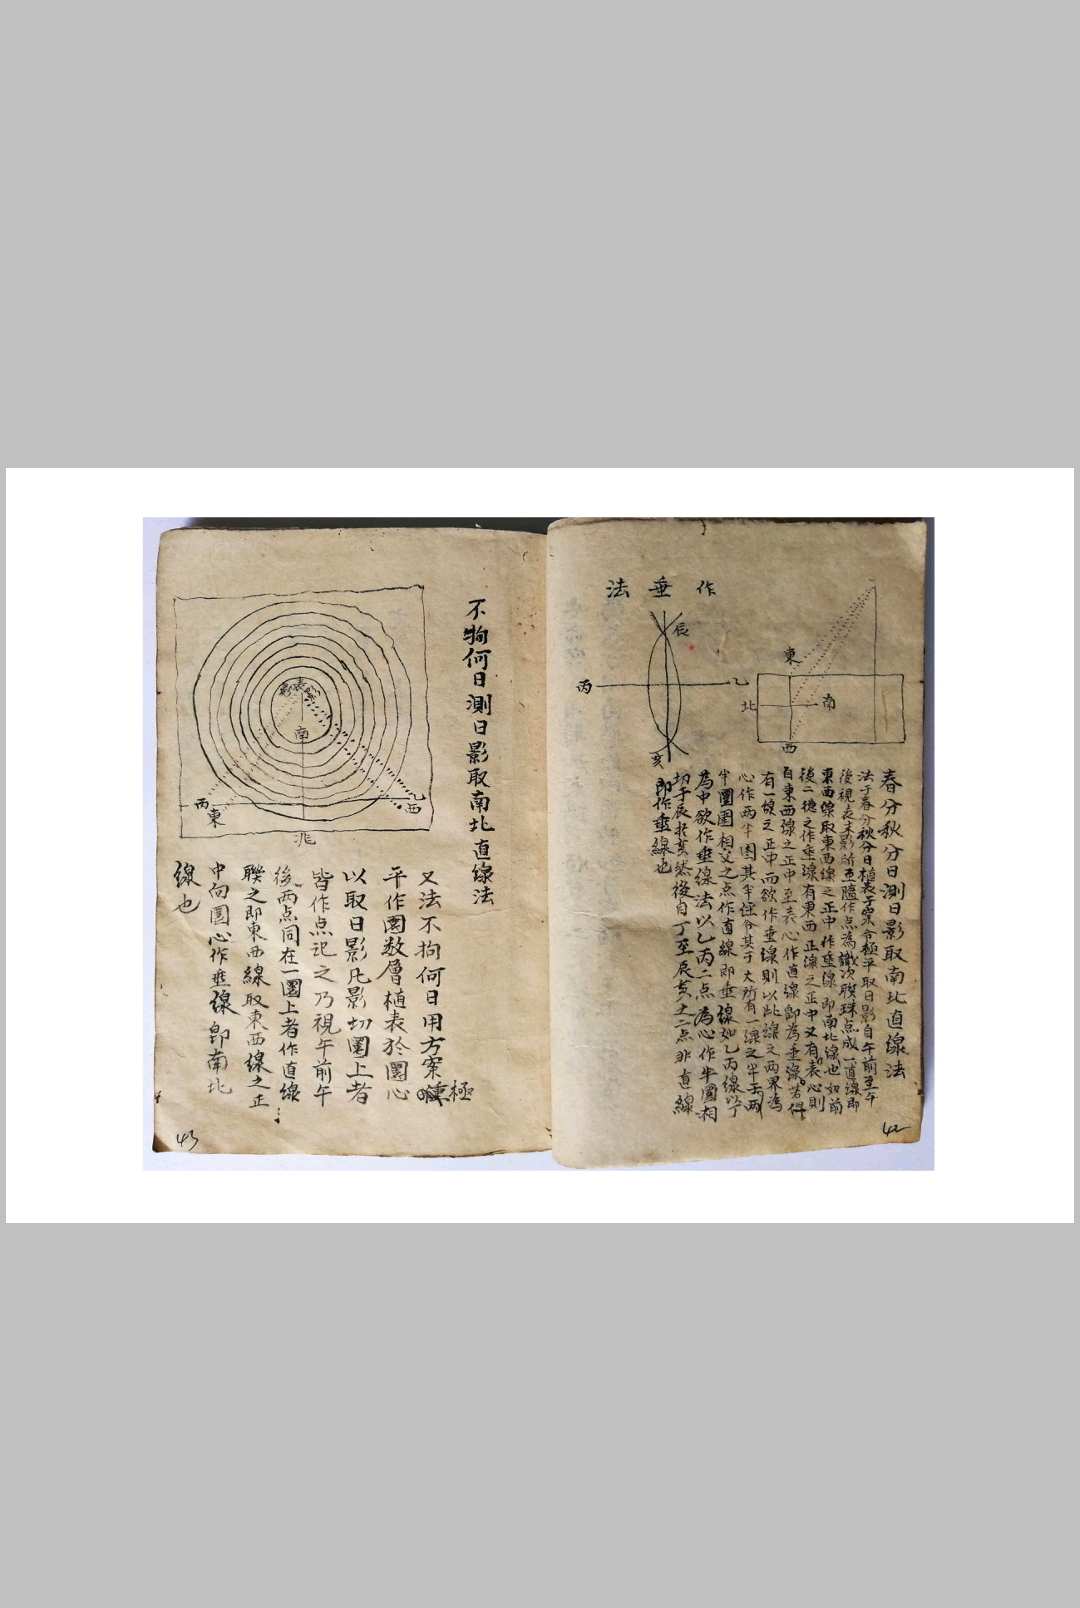 作垂法
辰
丙
乙
亥
東
北
南
西
春分秋分日測日影取南北直線法
法于春分秋分日植表于案令極平取日影自午前至午
後視表末影所至隨作点為識次聯珠点成一直線即
東西線取東西線之正中作垂線即南北線也如前
後一德之作垂線有東西正線之正中又有表心則
自東西線之正中至表心作直線即為垂線若得
有一線之正中而欲作垂線則以此線之兩界為
心作兩半圈其半徑令其于大所有一線之半于兩
半圜圜相交之点作直線即垂線如乙丙線以丁
為中欲作垂線法以乙丙二点為心作半圜相
切于辰於亥然後自丁至辰亥之二点非直線
即作垂線也
42
不拘何日測日影取南北直線法
表
南
丙
東
乙
西
北
又法不拘何日用方案極
平作圜数層植表於圜心
以取日影凡影切圜上者
皆作点記之乃視午前午
後兩点同在一圜上者作直線
聯之即東西線取東西線之正
中向圜心作垂線即南北
線也
43